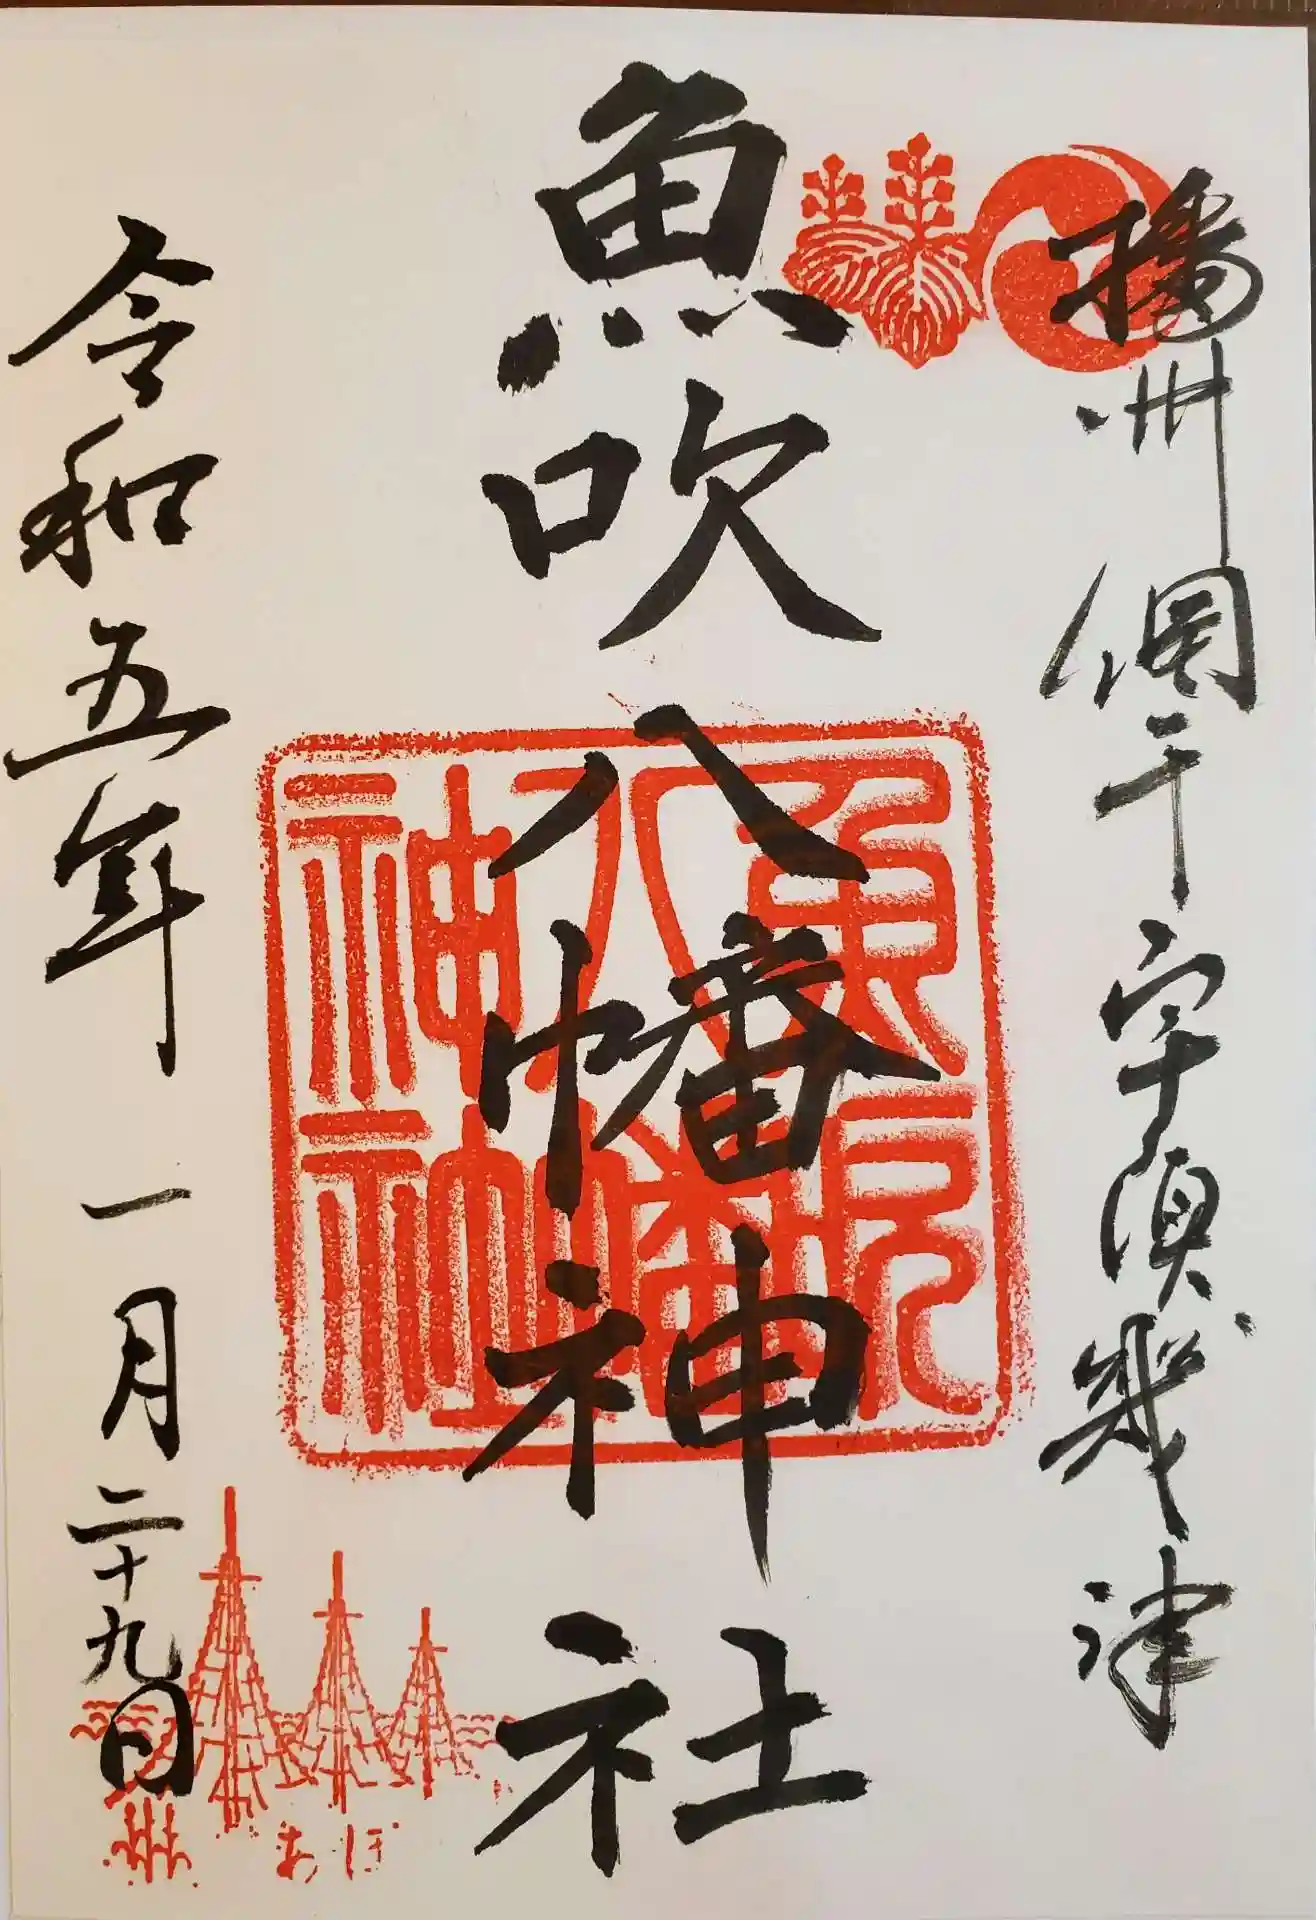 播州網干宇須幾津
魚吹八幡神社
魚吹
八幡
神社
令和五年一月二十九日